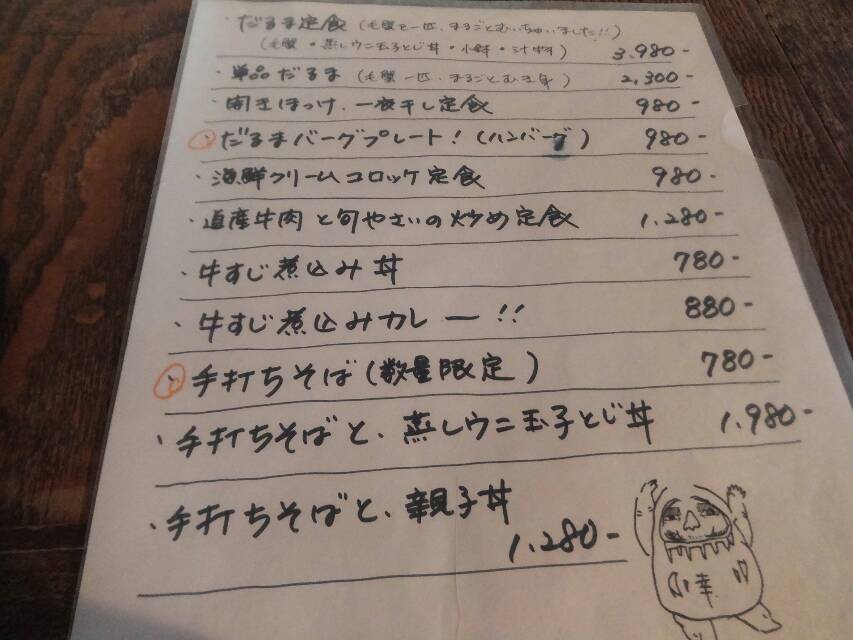 ・だるま定食(毛蟹を一匹、まるごとむいちゃいました!!)
(毛蟹・蒸しウニ玉子とじ丼・小鉢・汁物) 3,980-
・単品だるま (毛蟹一匹、まるごとむき身) 2,300-
・開きほっけ、一夜干し定食 980-
・だるまバーグプレート!(ハンバーグ) 980-
・海鮮クリームコロッケ定食 980-
・道産牛肉と旬やさいの炒め定食 1,280-
・牛すじ煮込み丼 780-
・牛すじ煮込みカレー!! 880-
・手打ちそば(数量限定) 780-
・手打ちそばと、蒸しウニ玉子とじ丼 1,980-
・手打ちそばと、親子丼
1,280-
幸